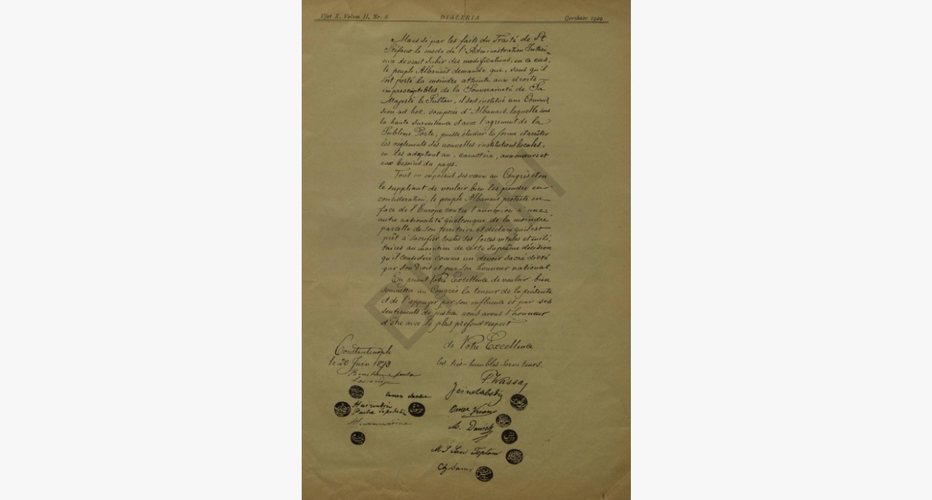 Vjet X, Volum II, Nr. 8 DYALERIA Gershuer 1949
Mais si par les faits du Traité de St
Stéfano le mode de l'Administration Intérieu
devait subir des modifications, en ce cas,
le peuple Albanais demande que, sans qu'il
soit porté la moindre atteinte aux droits
imprescriptibles de la Souveraineté de Sa
Majesté le Sultan, il soit institué une Commis
sion ad hoc, composée d'Albanais, laquelle sous
la haute surveillance et avec l'agrément de la
Sublime Porte, puisse étudier la forme et arrêter
les règlements des nouvelles institutions locales,
en les adoptant au caractère, aux mœurs et
aux besoins du pays.
Tout en exposant ses vœux au Congrès et en
le suppliant de vouloir bien les prendre en
considération, le peuple Albanais proteste en
face de l'Europe contre l'annexion à une
autre nationalité quelconque de la moindre
parcelle de son territoire et déclare qu'il est
prêt à sacrifier toutes ses forces vitales et mili
taires au maintien de cette suprême décision
qu'il considère comme un devoir sacré dicté
par son droit et par son honneur national.
En priant Votre Excellence de vouloir bien
soumettre au Congrès la teneur de la présente
et de l'appuyer par son influence et par ses
sentiments de justice nous avons l'honneur
d'être avec le plus profond respect
de Votre Excellence
les très-humbles serviteurs.
Constantinople
le 20 Juin 1878
P. Wassa
Omer
M. Danisch
M. J. Sari Toptani